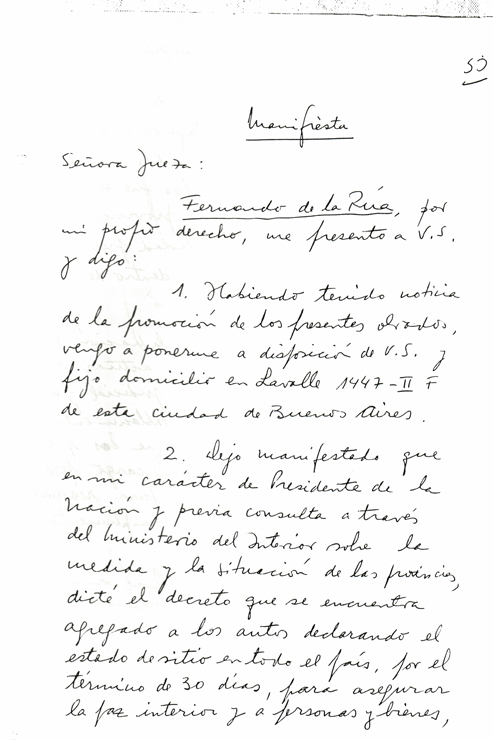 53
Manifiesta
Señora Jueza:
Fernando de la Rúa, por
mi propio derecho, me presento a V.S.
y digo:
1. Habiendo tenido noticia
de la promoción de los presentes obrados,
vengo a ponerme a disposición de V.S. y
fijo domicilio en Lavalle 1447-II F
de esta ciudad de Buenos Aires.
2. Dejo manifestado que
en mi carácter de Presidente de la
Nación y previa consulta a través
del Ministerio del Interior sobre la
medida y la situación de las provincias,
dicté el decreto que se encuentra
agregado a los autos declarando el
estado de sitio en todo el país, por el
término de 30 días, para asegurar
la paz interior y a personas y bienes,